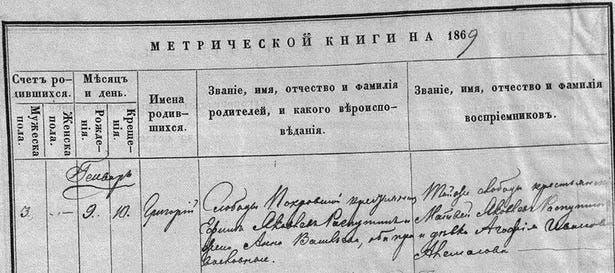 МЕТРИЧЕСКОЙ КНИГИ НА 1869
Счетъ ро-
дившихся.
Мужеска
пола.
Женска
пола.
Мѣсяцъ
и день.
Рожде-
нія.
Креще-
нія.
Имена
родив-
шихся.
Званіе, имя, отчество и фамилія
родителей, и какого вѣроиспо-
вѣданія.
Званіе, имя, отчество и фамилія
воспріемниковъ.
Генварь
3. 9. 10. Григорій
Слободы Покровской крестьянинъ
Ефимъ Яковлевъ Распутинъ и
жена Анна Васильева, оба пра-
вославные.
Тойже слободы крестьянинъ
Матвей Яковлевъ Распутинъ
и дѣвка Агафія Иванова